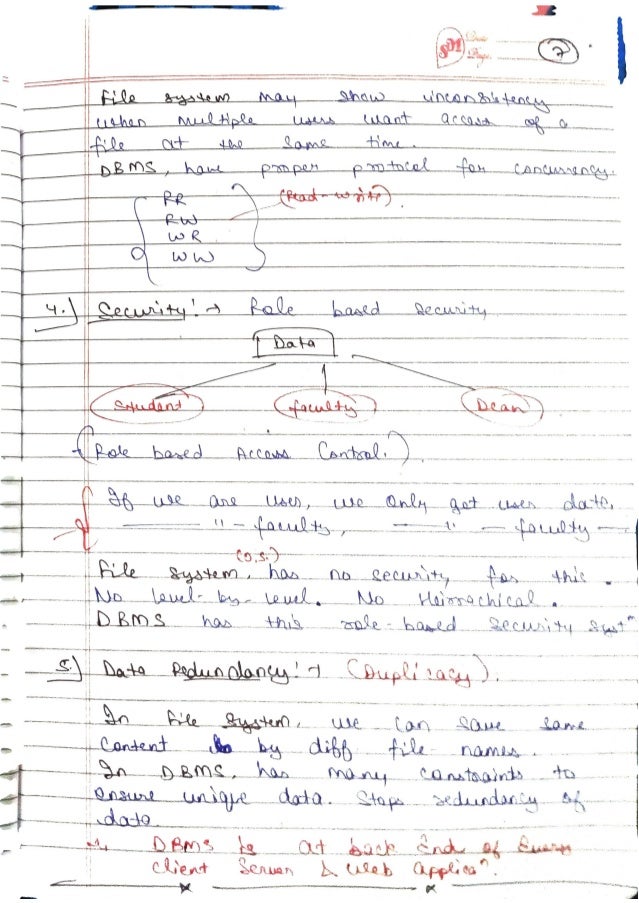 SM Date
Page
2
File system may show inconsistency
when multiple users want access of a
file at the same time.
DBMS, have proper protocol for concurrency.
RR (Read-write)
RW
WR
WW
4.) Security:→ Role based security
Data
Student faculty Dean
(Role based Access Control.)
If we are user, we only get user data.
—— " — faculty, — " — faculty —
(O.S.)
File system, has no security for this.
No level-by-level. No Heirrochical.
DBMS has this role-based security systm
5.) Data Redundancy:→ (Duplicacy).
In File System, we can save same
Content by diff file names.
In DBMS, has many constraints to
ensure unique data. Stops redundancy of
data.
DBMS is at back End of Every
client Server & web applican.